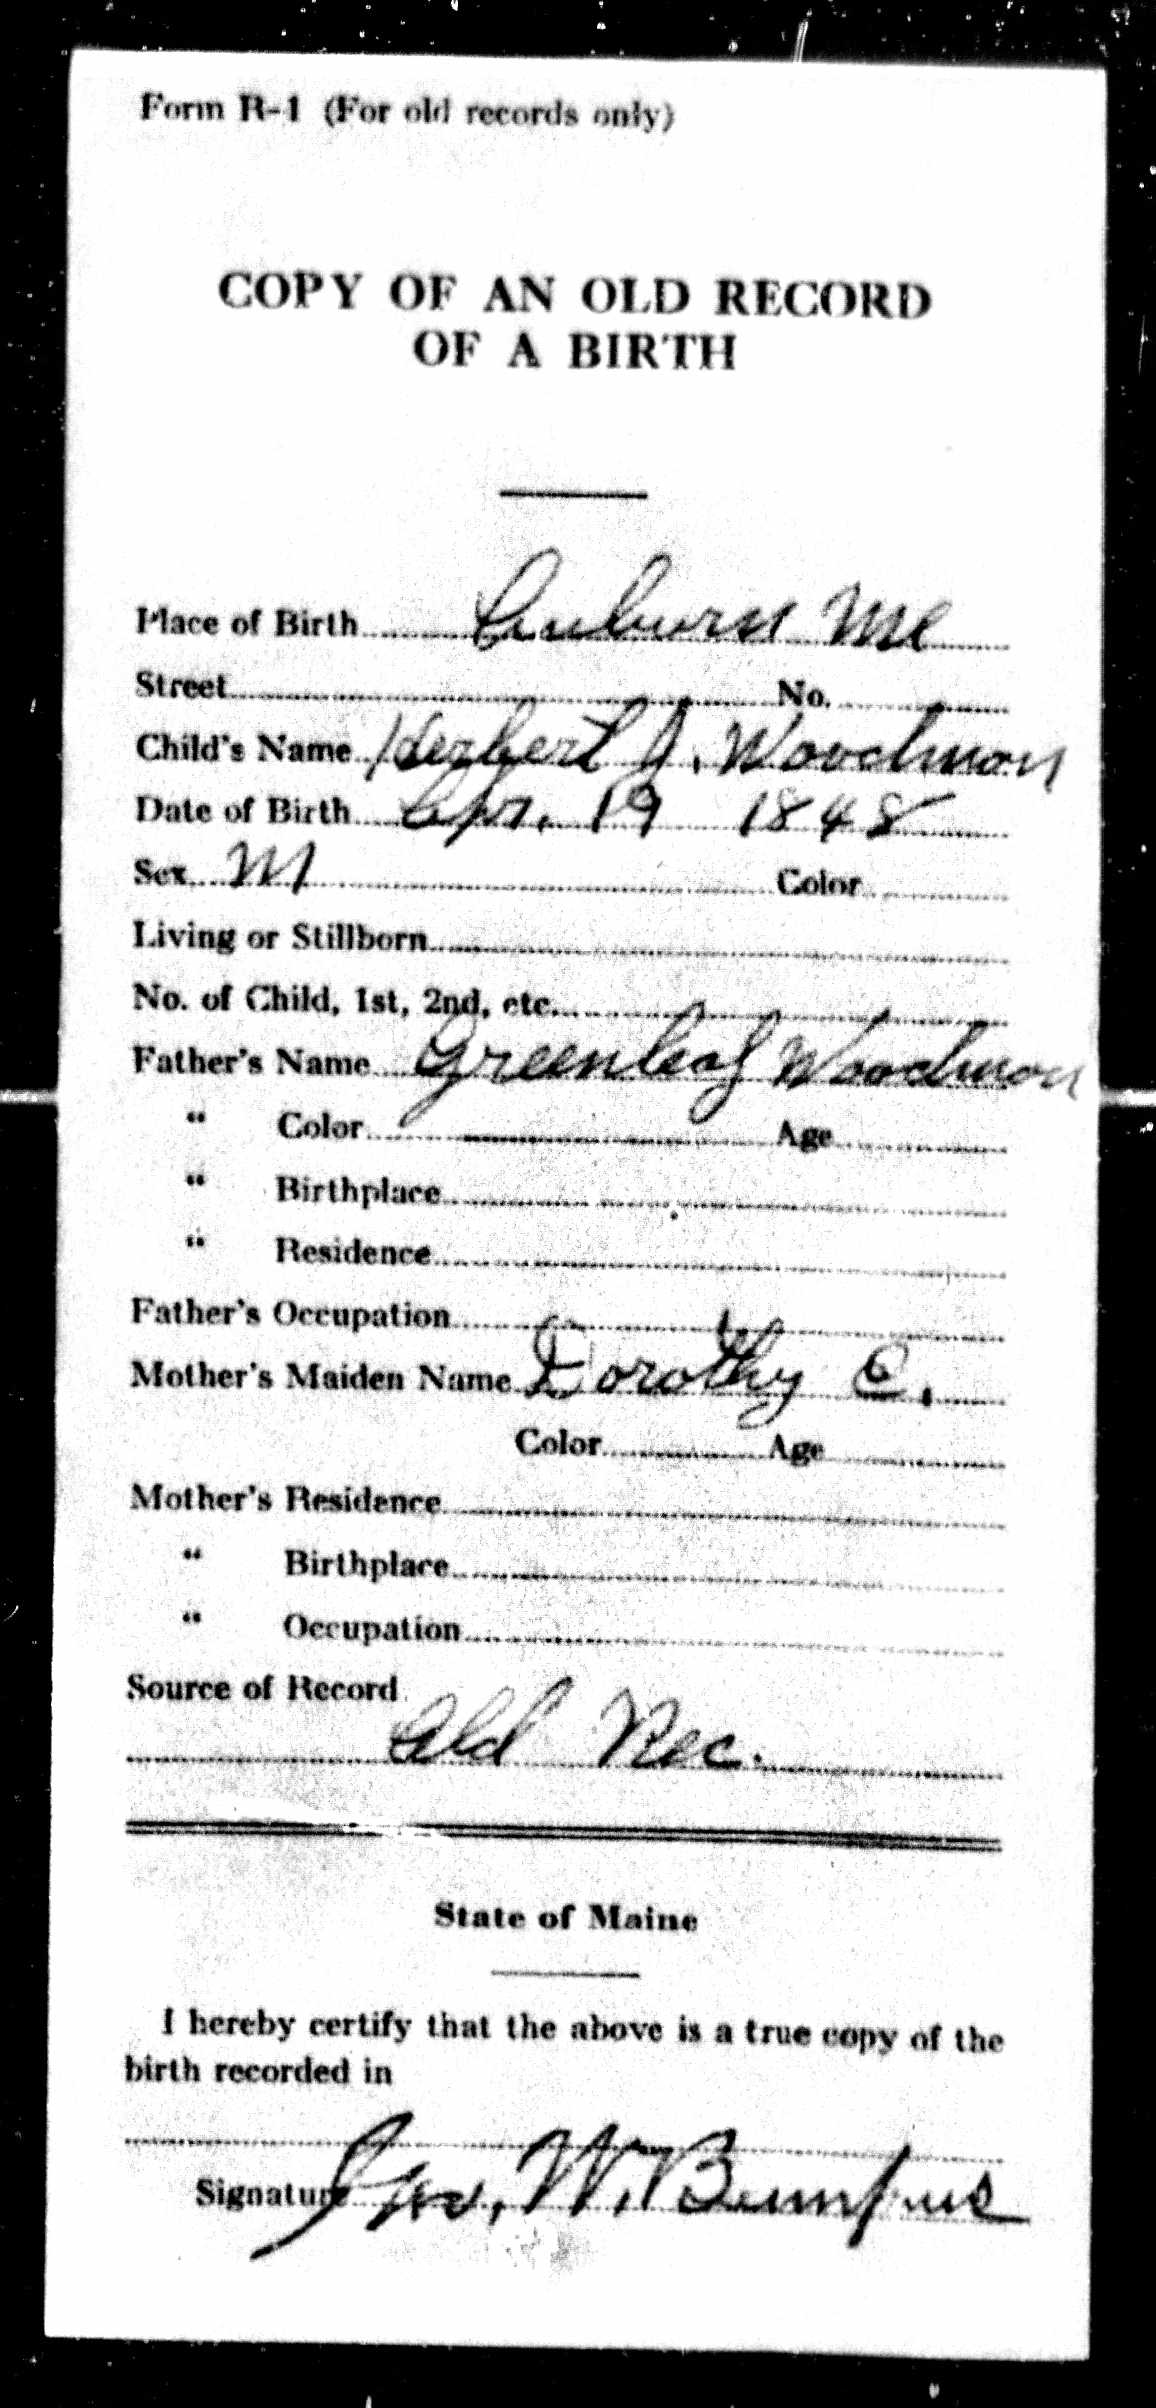 Form R-1 (For old records only)
COPY OF AN OLD RECORD
OF A BIRTH
Place of Birth Auburn Me
Street No.
Child's Name Herbert J. Woodman
Date of Birth Apr. 19 1848
Sex M Color
Living or Stillborn
No. of Child, 1st, 2nd, etc.
Father's Name Greenleaf Woodman
" Color Age
" Birthplace
" Residence
Father's Occupation
Mother's Maiden Name Dorothy C.
Color Age
Mother's Residence
" Birthplace
" Occupation
Source of Record
Old Rec.
State of Maine
I hereby certify that the above is a true copy of the
birth recorded in
Signature Geo. W. Bumpus